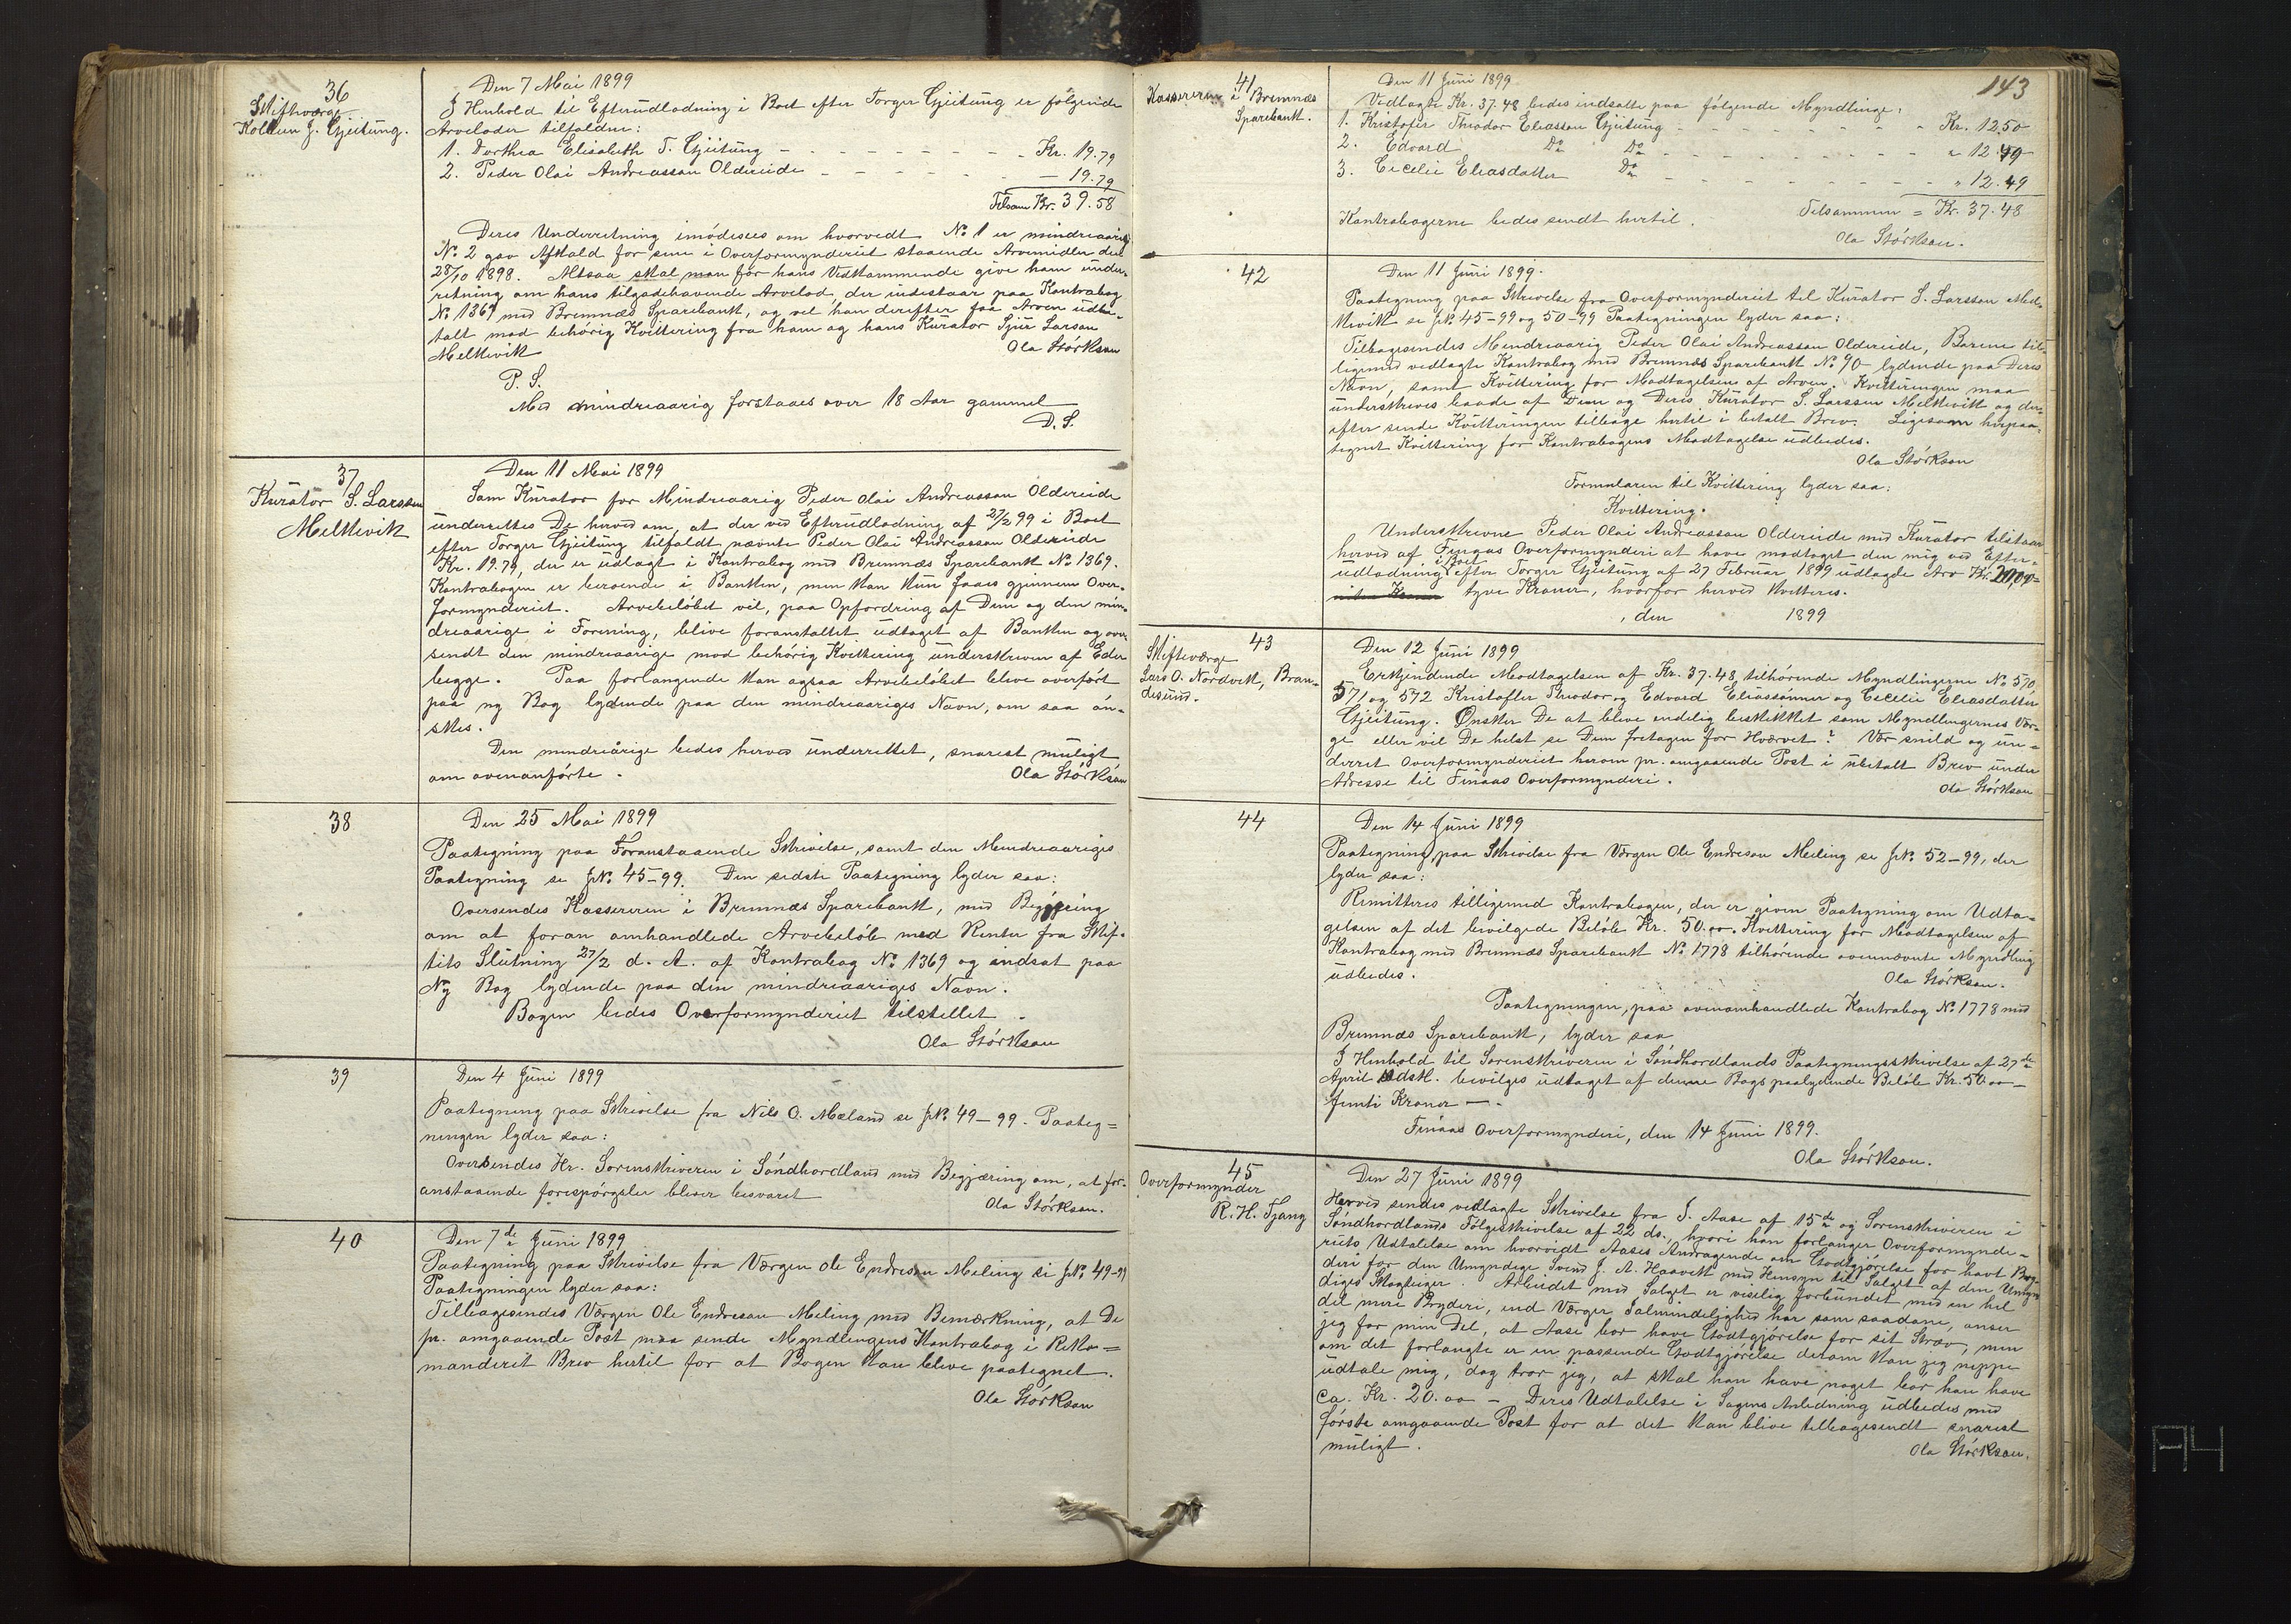 36
Skifteværge
Kolbein J. Gjeitung.
Den 7 Mai 1899
I Henhold til Efterudlodning i Boet efter Torger Gjeitung er følgende
Arvelodder tilfaldne:
1. Dorthea Elisabeth T. Gjeitung - - - - - - - - Kr. 19.79
2. Peder Olai Andreasson Oldereide - - - - - - — 19.79
Tilsam Kr. 39.58
Deres Underretning imødesees om hvorvidt No 1 er mindreaarig
No 2 gav Afkald for sine i Overformynderiet staaende Arvemidler del
28/10 1898. Altsaa skal man for hans Vedkommende give ham under-
retning om hans tilgodehavende Arvelod, der indestaar paa Kontrabog
No 1369 med Bremnæs Sparebank, og vil han derefter faa Arven udbe-
talt mod behørig Kvittering fra ham og hans Kurator Sjur Larson
Melkevik
Ola Størkson
P. S.
Med mindreaarig forstaaes over 18 Aar gammel
D. S.
37
Kurator S. Larsson
Melkevik
Den 11 Mai 1899
Som Kurator for Mindreaarig Peder Olai Andreasson Oldereide
underrettes De herved om, at der ved Efterudlodning af 27/2 99 i Boet
efter Torger Gjeitung tilfaldt nævnte Peder Olai Andreasson Oldereide
Kr. 19.79, der er udlagt i Kontrabog med Bremnæs Sparebank No 1369.
Kontrabogen er beroende i Banken, men kan kun faaes gjennem Over-
formynderiet. Arvebeløbet vil, paa Opfordring af Dem og den min-
dreaarige i Forening, blive foranstaltet udtaget af Banken og over-
sendt den mindreaarige mod behørig Kvittering underskreven af Eder
begge. Paa forlangende kan ogsaa Arvebeløbet blive overført
paa ny Bog lydende paa den mindreaariges Navn, om saa øn-
skes.
Den mindreårige bedes herved underrettet, snarest muligt
om ovenanførte.
Ola Størkson
38
Den 25 Mai 1899
Paategning paa Foranstaaende Skrivelse, samt den Mindreaariges
Paategning se JNo 45-99. Den sidste Paategning lyder saa:
Oversendes Kassereren i Bremnæs Sparebank, med Begjæring
om at foran omhandlede Arvebeløb med Renter fra Skif-
tets Slutning 27/2 d. A. af Kontrabog No 1369 og indsat paa
Ny Bog lydende paa den mindreaariges Navn.
Bogen bedes Overformynderiet tilstillet.
Ola Størkson
39
Den 4 Juni 1899
Paategning paa Skrivelse fra Nils O. Mæland se JNo 49-99. Paateg=
ningen lyder saa:
Oversendes Hr. Sorenskriveren i Søndhordland med Begjæring om, at for-
anstaaende forespørgsler bliver besvaret
Ola Størkson.
40
Den 7de Juni 1899
Paategning paa Skrivelse fra Værgen Ole Endreson Meling se JNo 49-99
Paategningen lyder saa:
Tilbagesendes Værgen Ole Endreson Meling med Bemærkning, at De
pr. omgaaende Post maa sende Myndlingens Kontrabog i Reko=
manderet Brev hertil for at Bogen kan blive paategnet.
Ola Størkson
143
41
Kassereren i Bremnæs
Sparebank.
Den 11 Juni 1899
Vedlagte Kr. 37.48 bedes indsatte paa følgende Myndlinge:
1. Kristofer Theodor Eliasson Gjeitung - - - - - - - Kr. 12.50
2. Edvard Do Do - - - - - - - " 12.49
3. Cecelie Eliasdatter Do - - - - - - - " 12.49
Tilsammen = Kr. 37.48
Kontrabøgerne bedes sendt hertil.
Ola Størkson.
42
Den 11 Juni 1899.
Paategning paa Skrivelse fra Overformynderiet til Kurator S. Larsson Mel-
kevik se JNo 45-99 og 50-99 Paategningen lyder saa:
Tilbagesendes Mindreaarig Peder Olai Andreasson Oldereide, Børøen til-
ligemed vedlagte Kontrabog med Bremnæs Sparebank No 90 lydende paa Deres
Navn, samt Kvittering for Modtagelsen af Arven. Kvitteringen maa
underskrives baade af Dem og Deres Kurator S. Larsson Melkevik og der-
efter sende Kvitteringen tilbage hertil i betalt Brev. Ligesom herpaa-
tegnet Kvittering for Kontrabogens Modtagelse udbedes.
Ola Størkson
Formularen til Kvittering lyder saa:
Kvittering.
Underskrevne Peder Olai Andreasson Oldereide med Kurator tilstaar
herved af Finaas Overformynderi at have modtaget den mig ved Efter-
udlodning i Boet efter Torger Gjeitung af 27 Februar 1899 udlagde Arv Kr. 20,00=
tyve Kroner, hvorfor herved kvitteres.
, den 1899
43
Skifteværge
Lars O. Nordvik, Bran-
desund.
Den 12 Juni 1899
Erkjendende Modtagelsen af Kr. 37.48 tilhørende Myndlingerne No 570,
571 og 572 Kristoffer Theodor og Edvard Eliassønner og Cecelie Eliasdatter
Gjeitung. Ønsker De at bleve endelig beskikket som Myndlingernes Vær-
ge eller vil De helst se Dem fretagen for Hvervet? Vær snild og un-
derret Overformynderiet herom pr. omgaaende Post i ubetalt Brev under
Adresse til Finaas Overformynderi.
Ola Størkson
44
Den 14 Juni 1899
Paategning paa Skrivelse fra Værgen Ole Endreson Meling se JNo 52-99, der
lyder saa:
Remitteres tilligemed Kontrabogen, der er given Paategning om Udta-
gelsen af det bevilgede Beløb Kr. 50.00. Kvittering for Modtagelsen af
Kontrabog med Bremnæs Sparebank No 1778 tilhørende ovennævnte Myndling
udbedes.
Ola Størkson.
Paategningen, paa ovenomhandlede Kontrabog No 1778 med
Bremnæs Sparebank, lyder saa
I Henhold til Sorenskriveren i Søndhordlands Paategningsskrivelse af 27de
April sidstl. bevilges udtaget af denne Bogs paalydende Beløb Kr. 50.00 —
femti Kroner —.
Finaas Overformynderi, den 14 Juni 1899.
Ola Størkson.
45
Overformynder
R. H. Tjang
Den 27 Juni 1899
Herved sendes vedlagte Skrivelse fra S. Aase af 15de og Sorenskriveren i
Søndhordlands Følgeskrivelse af 22 ds., hvori han forlanger Overformynde-
riets Udtalelse om hvorvidt Aases Andragende om Godtgjørelse for havt Bry-
deri for den Umyndige Svend J. A. Haavik med Hensyn til Salget af den Umyn-
diges Skogteiger. Arbeidet med Salget er viselig forbundet med en hel
del mere Bryderi, end Værger i almindelighed har som saadane, anser
jeg for min Del, at Aase bør have Godtgjørelse for sit Stræv, men
om det forlangte er en passende Godtgjørelse derom kan jeg neppe
udtale mig, dog tror jeg, at skal han have noget bør han have
Ca. Kr. 20.00 — Deres Udtalelse i Sagens Anledning udbedes med
første omgaaende Post for at det kan blive tilbagesendt snarest
muligt.
Ola Størkson.